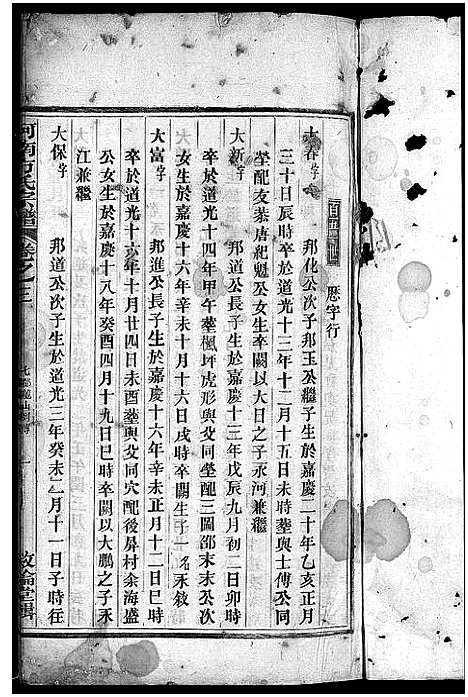 百五世 歷字行
大春字 邦化公次子邦玉公繼子生於嘉慶二十年乙亥正月
三十日辰時卒於道光十三年十二月十五日未時塟與士傅公同
塋配友葵唐紀魁公女生卒闕以大日之子永河兼繼
大新字 邦道公長子生於嘉慶十三年戊辰九月初二日卯時
卒於道光十四年甲午塟楓坪虎形與父同塋配三圖邵末末公次
女生於嘉慶十六年辛未十月十六日戌時卒闕生子一名永敘
大富字 邦進公長子生於嘉慶十六年辛未正月十二日巳時
卒於道光十六年十月廿四日未酉塟與父同穴配後屏村余海盛
公女生於嘉慶十八年癸酉四月十九日巳時卒闕以大鵬之子永
江兼繼
大保字 邦道公次子生於道光三年癸未二月十一日子時往
河南方氏宗譜 卷之三
敦倫堂輯